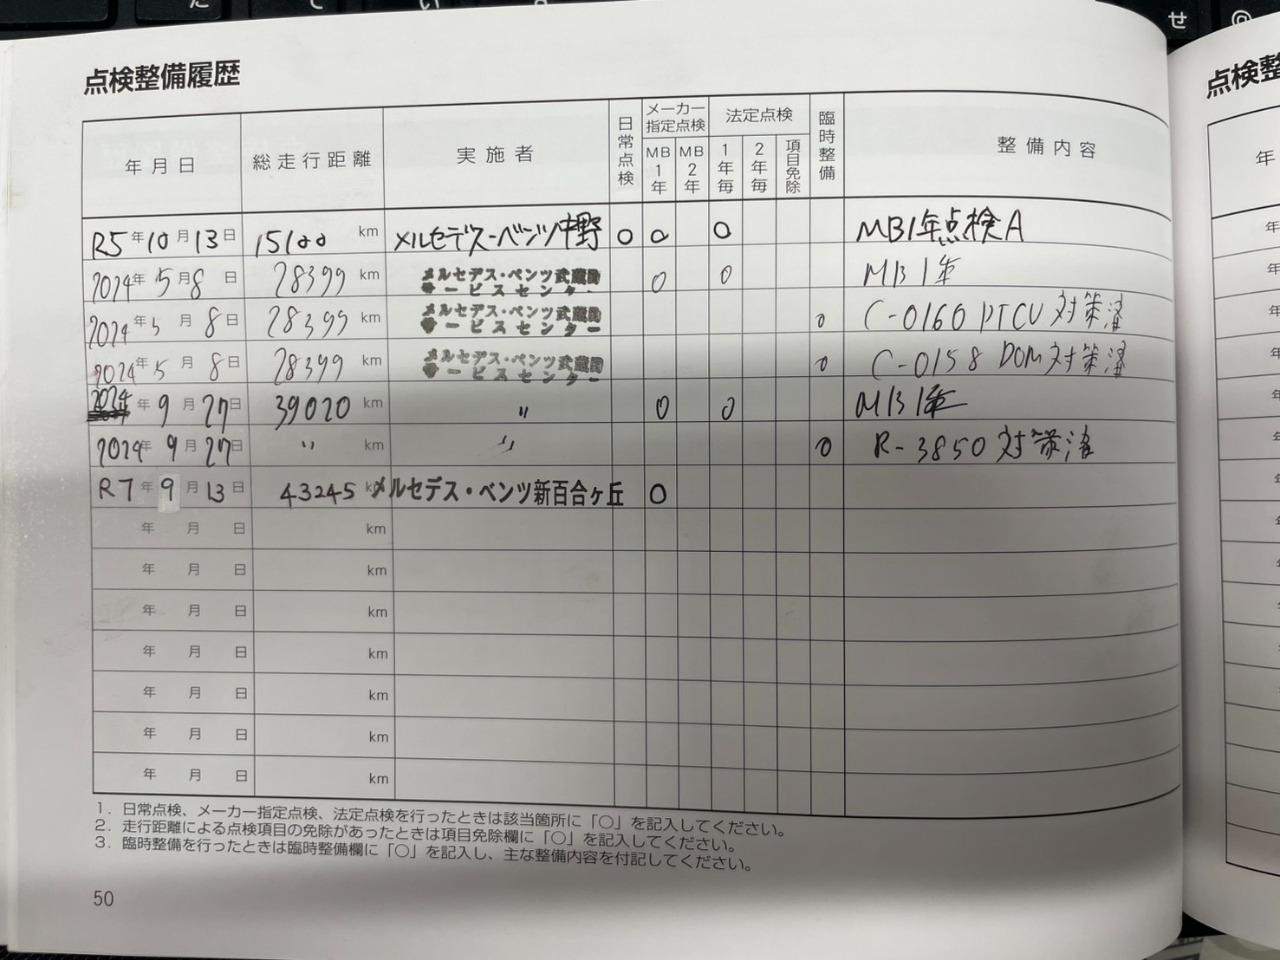 点検整備履歴
年月日 総走行距離 実施者 日常点検 メーカー指定点検 MB1年 MB2年 法定点検 1年毎 2年毎 項目免除 臨時整備 整備内容
R5年10月13日 15100 km メルセデス-ベンツ中野 ○ ○ ○ MB1年点検A
2024年5月8日 28399 km メルセデス・ベンツ武蔵野サービスセンター ○ ○ MB1年
2024年5月8日 28399 km メルセデス・ベンツ武蔵野サービスセンター ○ C-0160 PTCU対策済
2024年5月8日 28399 km メルセデス・ベンツ武蔵野サービスセンター ○ C-0158 DOM対策済
2024年9月27日 39020 km 〃 ○ ○ MB1年
2024年9月27日 〃 km 〃 ○ R-3850対策済
R7年9月13日 43245 km メルセデス・ベンツ新百合ヶ丘 ○
年 月 日 km
年 月 日 km
年 月 日 km
年 月 日 km
年 月 日 km
年 月 日 km
年 月 日 km
1. 日常点検、メーカー指定点検、法定点検を行ったときは該当箇所に「○」を記入してください。
2. 走行距離による点検項目の免除があったときは項目免除欄に「○」を記入してください。
3. 臨時整備を行ったときは臨時整備欄に「○」を記入し、主な整備内容を付記してください。
50
点検整
年
せ